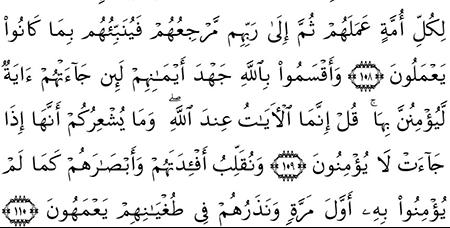 لِكُلِّ أُمَّةٍ عَمَلَهُمْ ثُمَّ إِلَىٰ رَبِّهِم مَّرْجِعُهُمْ فَيُنَبِّئُهُم بِمَا كَانُوا۟
يَعْمَلُونَ ﴿١٠٨﴾ وَأَقْسَمُوا۟ بِٱللَّهِ جَهْدَ أَيْمَـٰنِهِمْ لَئِن جَآءَتْهُمْ ءَايَةٌ
لَّيُؤْمِنُنَّ بِهَا ۚ قُلْ إِنَّمَا ٱلْـَٔايَـٰتُ عِندَ ٱللَّهِ ۖ وَمَا يُشْعِرُكُمْ أَنَّهَآ إِذَا
جَآءَتْ لَا يُؤْمِنُونَ ﴿١٠٩﴾ وَنُقَلِّبُ أَفْـِٔدَتَهُمْ وَأَبْصَـٰرَهُمْ كَمَا لَمْ
يُؤْمِنُوا۟ بِهِۦٓ أَوَّلَ مَرَّةٍ وَنَذَرُهُمْ فِى طُغْيَـٰنِهِمْ يَعْمَهُونَ ﴿١١٠﴾